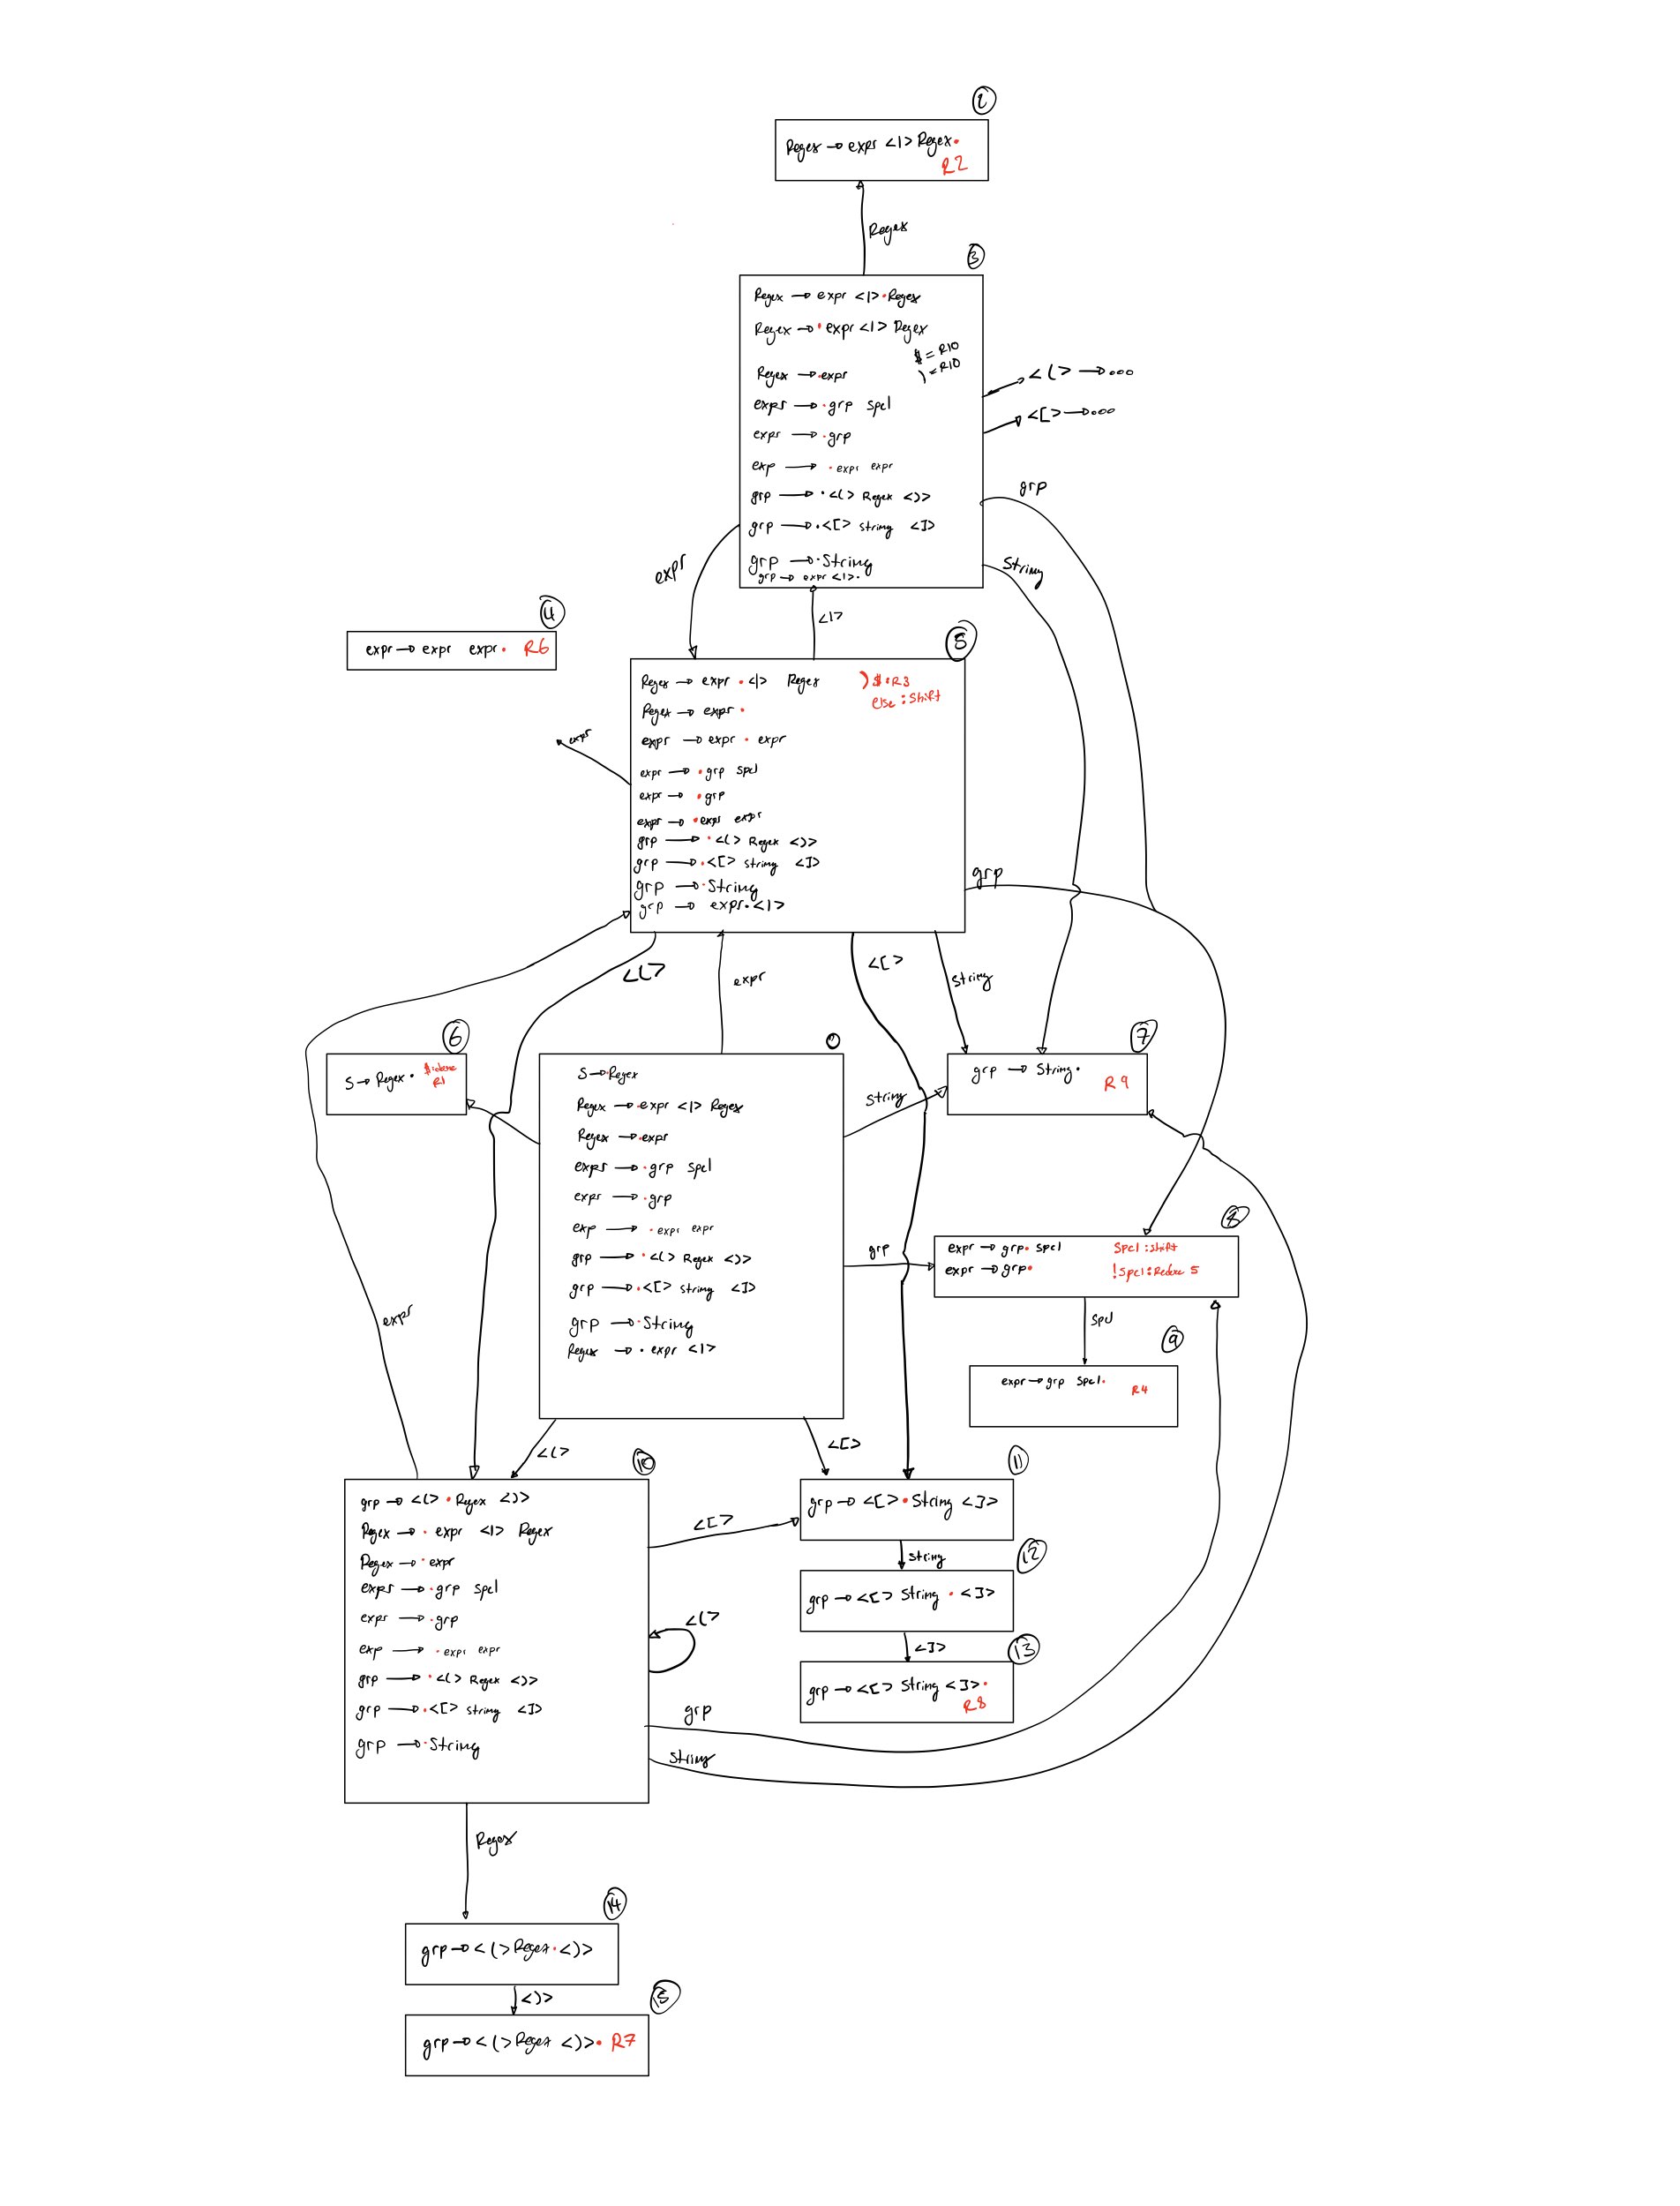 2
Regex → expr <|> Regex•
R2
Regex
3
Regex → expr <|> •Regex
Regex → • expr <|> Regex
$ = R10
) = R10
Regex → •expr
expr → •grp spcl
expr → •grp
exp → • expr expr
grp → •<(> Regex <)>
grp → •<[> string <]>
grp → •String
grp → expr <|>•
<(> → ...
<[> → ...
grp
String
expr
<|>
4
expr → expr expr• R6
5
Regex → expr • <|> Regex
) $ : R3
else : shift
Regex → expr •
expr → expr • expr
expr → •grp spcl
expr → •grp
expr → •expr expr
grp → •<(> Regex <)>
grp → •<[> string <]>
grp → •String
grp → expr•<|>
expr
grp
<(>
expr
<[>
string
6
S → Regex •
R1
0
S → •Regex
Regex → •expr <|> Regex
Regex → •expr
expr → •grp spcl
expr → •grp
exp → • expr expr
grp → •<(> Regex <)>
grp → •<[> string <]>
grp → •String
Regex → • expr <|>
String
7
grp → String•
R9
grp
8
expr → grp• spcl
Spcl : shift
expr → grp•
!Spcl : Reduce 5
spcl
9
expr → grp spcl•
R4
expr
<(>
<[>
10
grp → <(> •Regex <)>
Regex → • expr <|> Regex
Regex → •expr
expr → •grp spcl
expr → •grp
exp → • expr expr
grp → •<(> Regex <)>
grp → •<[> string <]>
grp → •String
<[>
<(>
grp
string
11
grp → <[>•String <]>
string
12
grp → <[> String • <]>
<]>
13
grp → <[> String <]>•
R8
Regex
14
grp → <(>Regex•<)>
<)>
15
grp → <(>Regex <)>• R7